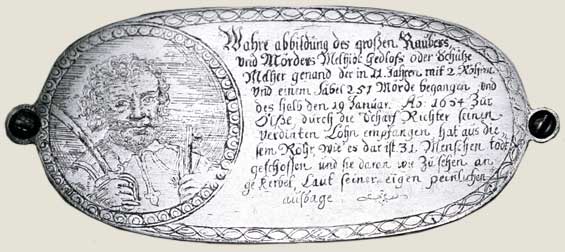 Wahre abbildung des großen Raubers
und Mörders Melchior Hedloff oder Schütze
Melcher genand der in 21 Jahren mit 2 Röhren
und einem Sabel 251 Morde begangen und
deshalb den 19 Januar. Ao 1654 Zur
Ölße, durch die Scharf Richter seinen
verdinten Lohn empfangen, hat aus die
sem Rohr, wie es dar ist 31 Menschen tod
geschossen und sie daran wie zu sehen an
gekerbet, Laut seiner eigen peinlichen
aussage.